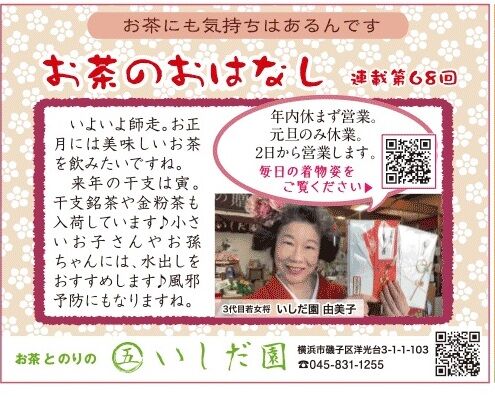 お茶にも気持ちはあるんです
お茶のおはなし 連載第68回
いよいよ師走。お正
月には美味しいお茶
を飲みたいですね。
来年の干支は寅。
干支銘茶や金粉茶も
入荷しています♪小さ
いお子さんやお孫
ちゃんには、水出しを
おすすめします♪風邪
予防にもなりますね。
年内休まず営業。
元旦のみ休業。
2日から営業します。
毎日の着物姿を
ご覧ください▶
3代目若女将 いしだ園 由美子
お茶とのりの 五 いしだ園
横浜市磯子区洋光台3-1-1-103
☎045-831-1255